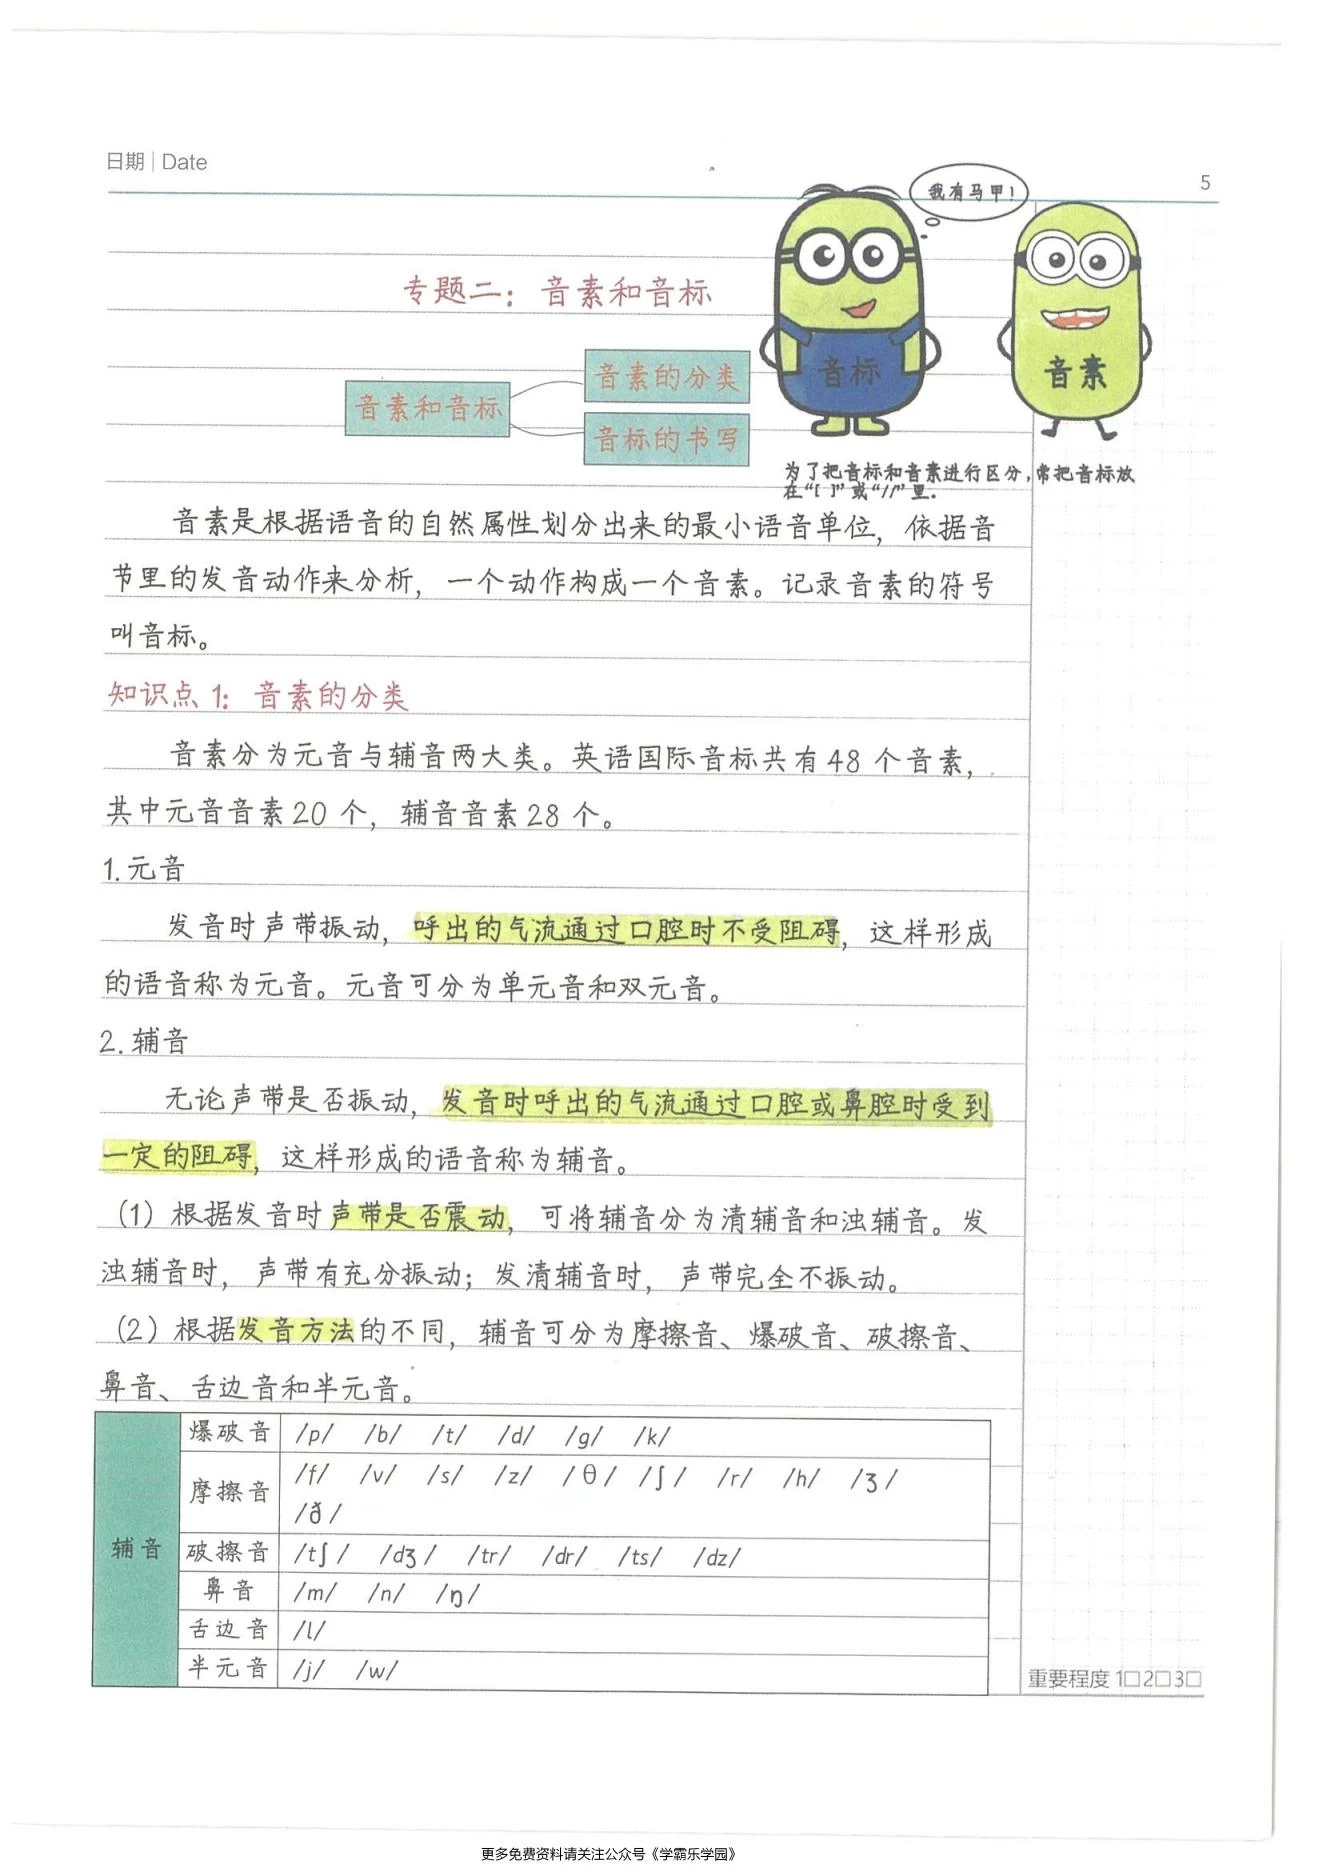 日期 | Date
5
我有马甲!
专题二：音素和音标
音素和音标
音素的分类
音标的书写
音标
音素
为了把音标和音素进行区分,常把音标放
在“[ ]”或“//”里.
音素是根据语音的自然属性划分出来的最小语音单位，依据音
节里的发音动作来分析，一个动作构成一个音素。记录音素的符号
叫音标。
知识点1：音素的分类
音素分为元音与辅音两大类。英语国际音标共有48个音素，
其中元音音素20个，辅音音素28个。
1.元音
发音时声带振动，呼出的气流通过口腔时不受阻碍，这样形成
的语音称为元音。元音可分为单元音和双元音。
2.辅音
无论声带是否振动，发音时呼出的气流通过口腔或鼻腔时受到
一定的阻碍，这样形成的语音称为辅音。
（1）根据发音时声带是否震动，可将辅音分为清辅音和浊辅音。发
浊辅音时，声带有充分振动；发清辅音时，声带完全不振动。
（2）根据发音方法的不同，辅音可分为摩擦音、爆破音、破擦音、
鼻音、舌边音和半元音。
辅音
爆破音 /p/ /b/ /t/ /d/ /g/ /k/
摩擦音 /f/ /v/ /s/ /z/ /θ/ /ʃ/ /r/ /h/ /ʒ/
/ð/
破擦音 /tʃ/ /dʒ/ /tr/ /dr/ /ts/ /dz/
鼻音 /m/ /n/ /ŋ/
舌边音 /l/
半元音 /j/ /w/
重要程度 1□2□3□
更多免费资料请关注公众号《学霸乐学园》